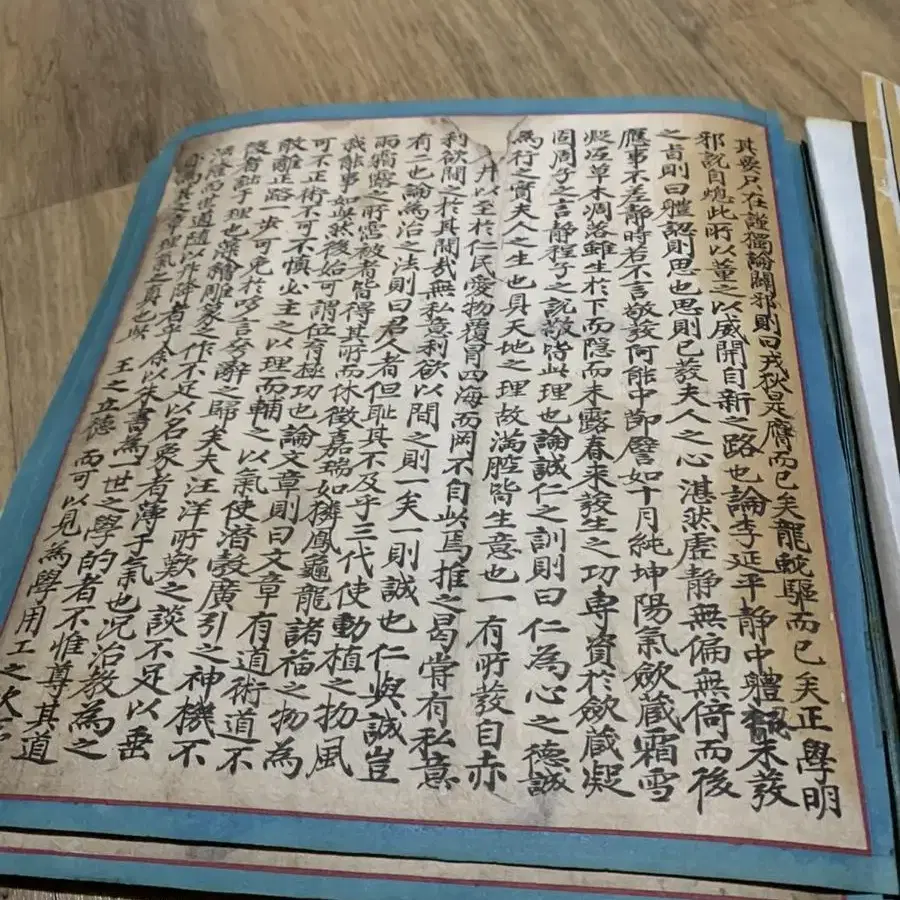 其要只在謹獨論闢邪則曰戎狄是膺而已矣龍蛇驅而已矣正學明
邪說自熄此所以董之以威開自新之路也論李延平靜中軆認未發
之旨則曰軆認則思也思則已發夫人之心湛然虛靜無偏無倚而後
應事不差靜時若不言敬發何能中節譬如十月純坤陽氣斂藏霜雪
凝冱草木凋落雖生於下而隱而未露春來發生之功専資於斂藏凝
固周子之言靜程子之說敬皆此理也論誠仁之訓則曰仁為心之德誠
為行之實夫人之生也具天地之理故滿腔皆生意也一有所發自赤
以至於仁民愛物覆育四海而罔不自此焉推之曷嘗有私意
利欲間之於其間哉無私意利欲以間之則一矣一則誠也仁與誠豈
有二也論為治之法則曰君人者但耻其不及乎三代使動植之物風
雨霜露之所霑被者皆得其所而休徵嘉瑞如獜鳳龜龍諸福之物為
我能事如此然後始可謂位育極功也論文章則曰文章有道術道不
可不正術不可不慎必主之以理而輔之以氣使濬發廣引之神機不
散離正路一步可免於哆言夸辭之歸矣夫汪洋所歎之談不足以垂
後者蝕于理也藻繪雕篆之作不足以名家者薄于氣也况治教為之
汚隆而世道隨以升降者乎余以朱書為一世之學的者不惟尊其道
其文章理氣之眞也此 王之立德 而可以見為學用工之次